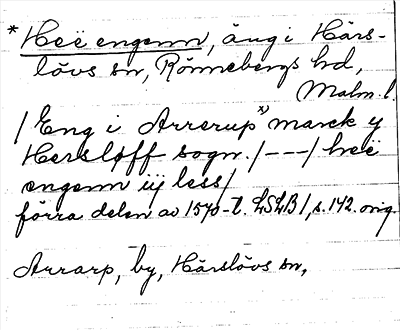 *Heë engenn, äng i Härs-
lövs sn, Rönnebergs hd,
Malm. l.
/Eng i Arrerup x) marck y
Hersløff sogn./---/heë
engenn iij less/
förra delen av 1570-t. LSLB1, s. 142. orig.
Arrarp, by, Härslövs sn,